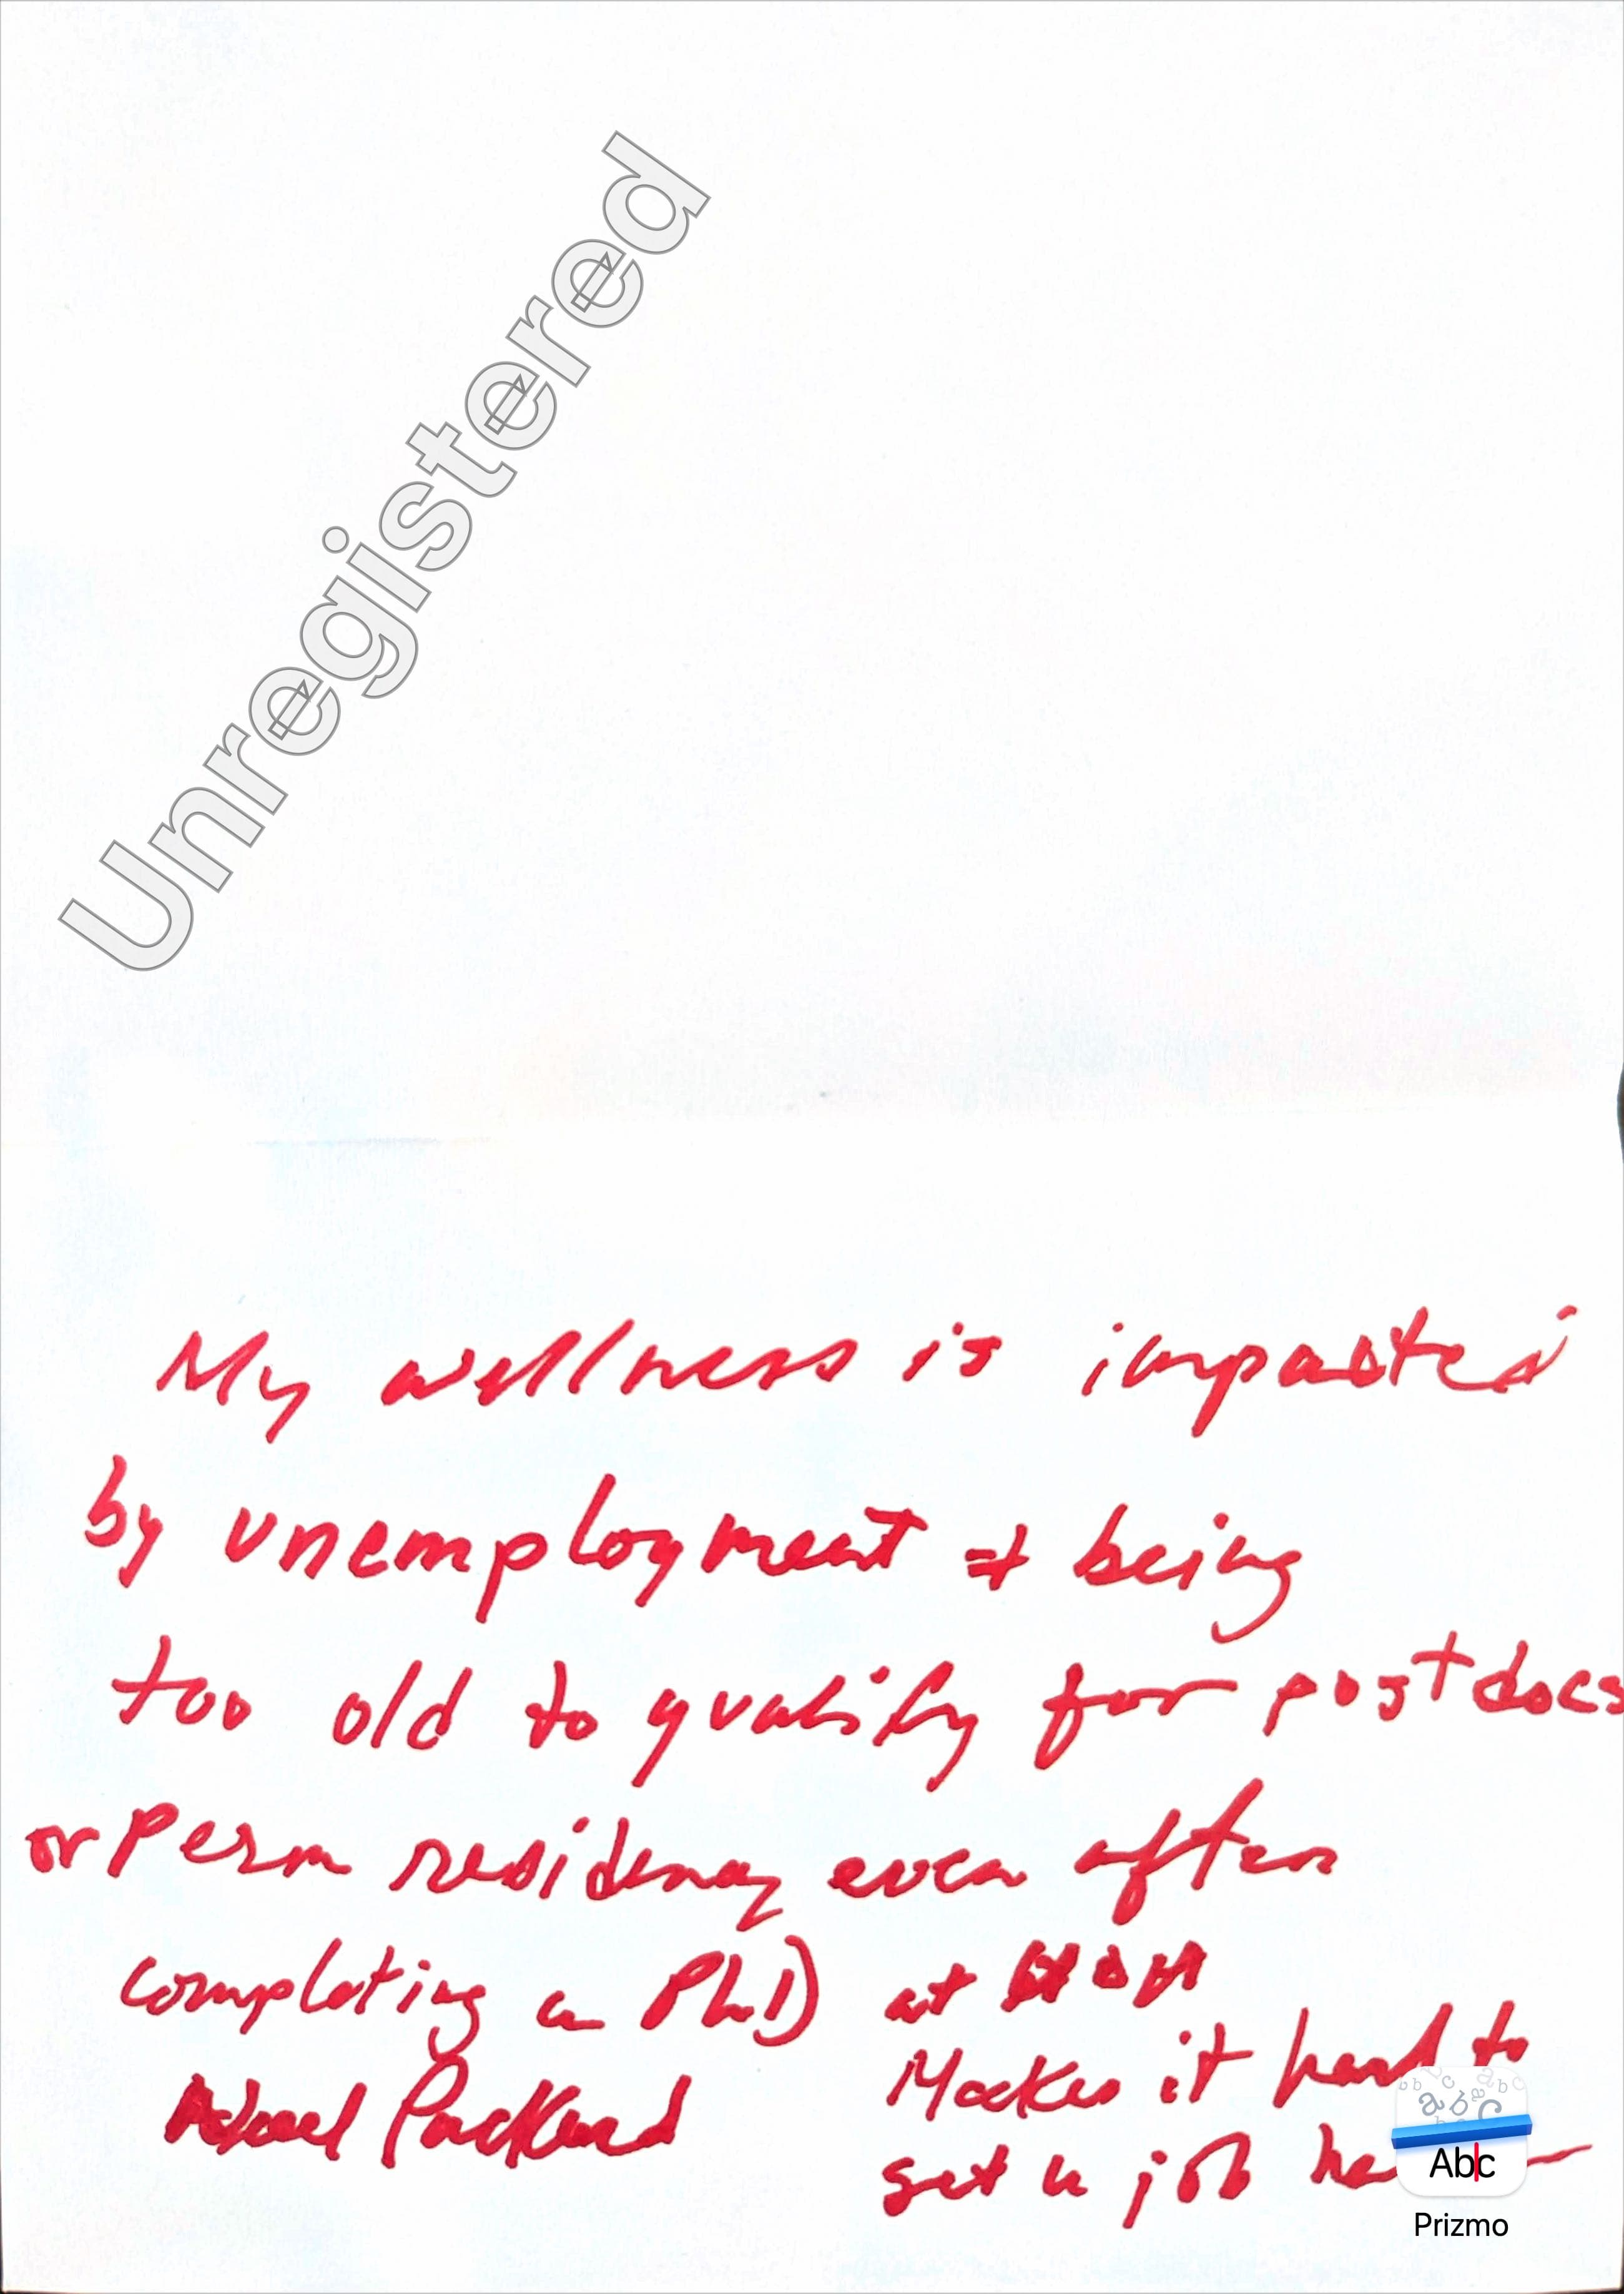 Unregistered
My wellness is impacted
by unemployment + being
too old to qualify for postdocs
or perm residency even after
completing a PhD at
Makes it hard to
Packard
get a job
Abc
Prizmo